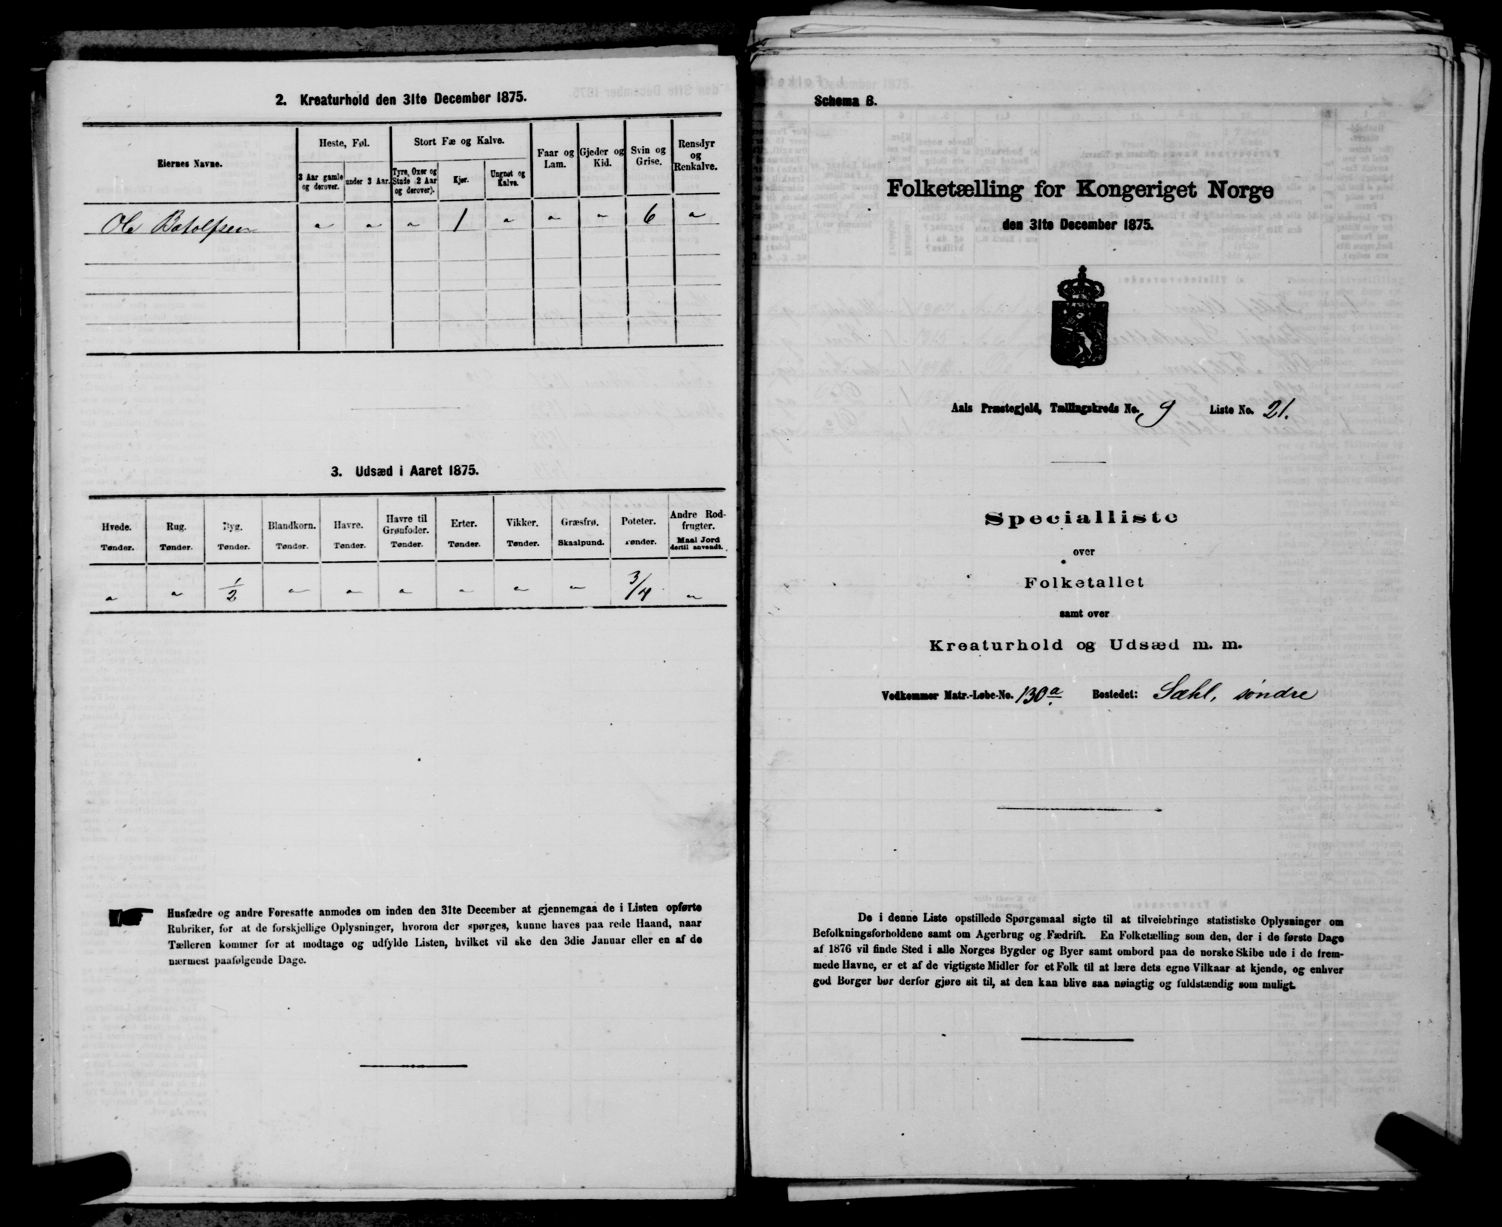 2. Kreaturhold den 31te December 1875.
Eiernes Navne.
Heste, Føl.
Stort Fæ og Kalve.
Faar og Lam.
Gjeder og Kid.
Svin og Grise.
Rensdyr og Renkalve.
3 Aar gamle og derover.
under 3 Aar.
Tyre, Oxer og Stude (2 Aar og derover).
Kjør.
Ungnøt og Kalve.
Ole Botolfsen " " " 1 " " " 6 "
3. Udsæd i Aaret 1875.
Hvede. Rug. Byg. Blandkorn. Havre. Havre til Grønfoder. Erter. Vikker. Græsfrø. Poteter. Andre Rodfrugter.
Tønder. Tønder. Tønder. Tønder. Tønder. Tønder. Tønder. Tønder. Skaalpund. Tønder. Maal Jord dertil anvendt.
" " 1/2 " " " " " " 3/4 "
Husfædre og andre Foresatte anmodes om inden den 31te December at gjennemgaa de i Listen opførte
Rubriker, for at de forskjellige Oplysninger, hvorom der spørges, kunne haves paa rede Haand, naar
Tælleren kommer for at modtage og udfylde Listen, hvilket vil ske den 3die Januar eller en af de
nærmest paafølgende Dage.
Schema B.
Folketælling for Kongeriget Norge
den 31te December 1875.
Aals Præstegjeld, Tællingskreds No. 9 Liste No. 21.
Specialliste
over
Folketallet
samt over
Kreaturhold og Udsæd m. m.
Vedkommer Matr.-Løbe-No. 130a Bostedet: Sæhl, søndre
De i denne Liste opstillede Spørgsmaal sigte til at tilveiebringe statistiske Oplysninger om
Befolkningsforholdene samt om Agerbrug og Fædrift. En Folketælling som den, der i de første Dage
af 1876 vil finde Sted i alle Norges Bygder og Byer samt ombord paa de norske Skibe ude i de frem-
mede Havne, er et af de vigtigste Midler for et Folk til at lære dets egne Vilkaar at kjende, og enhver
god Borger bør derfor gjøre sit til, at den kan blive saa nøiagtig og fuldstændig som muligt.